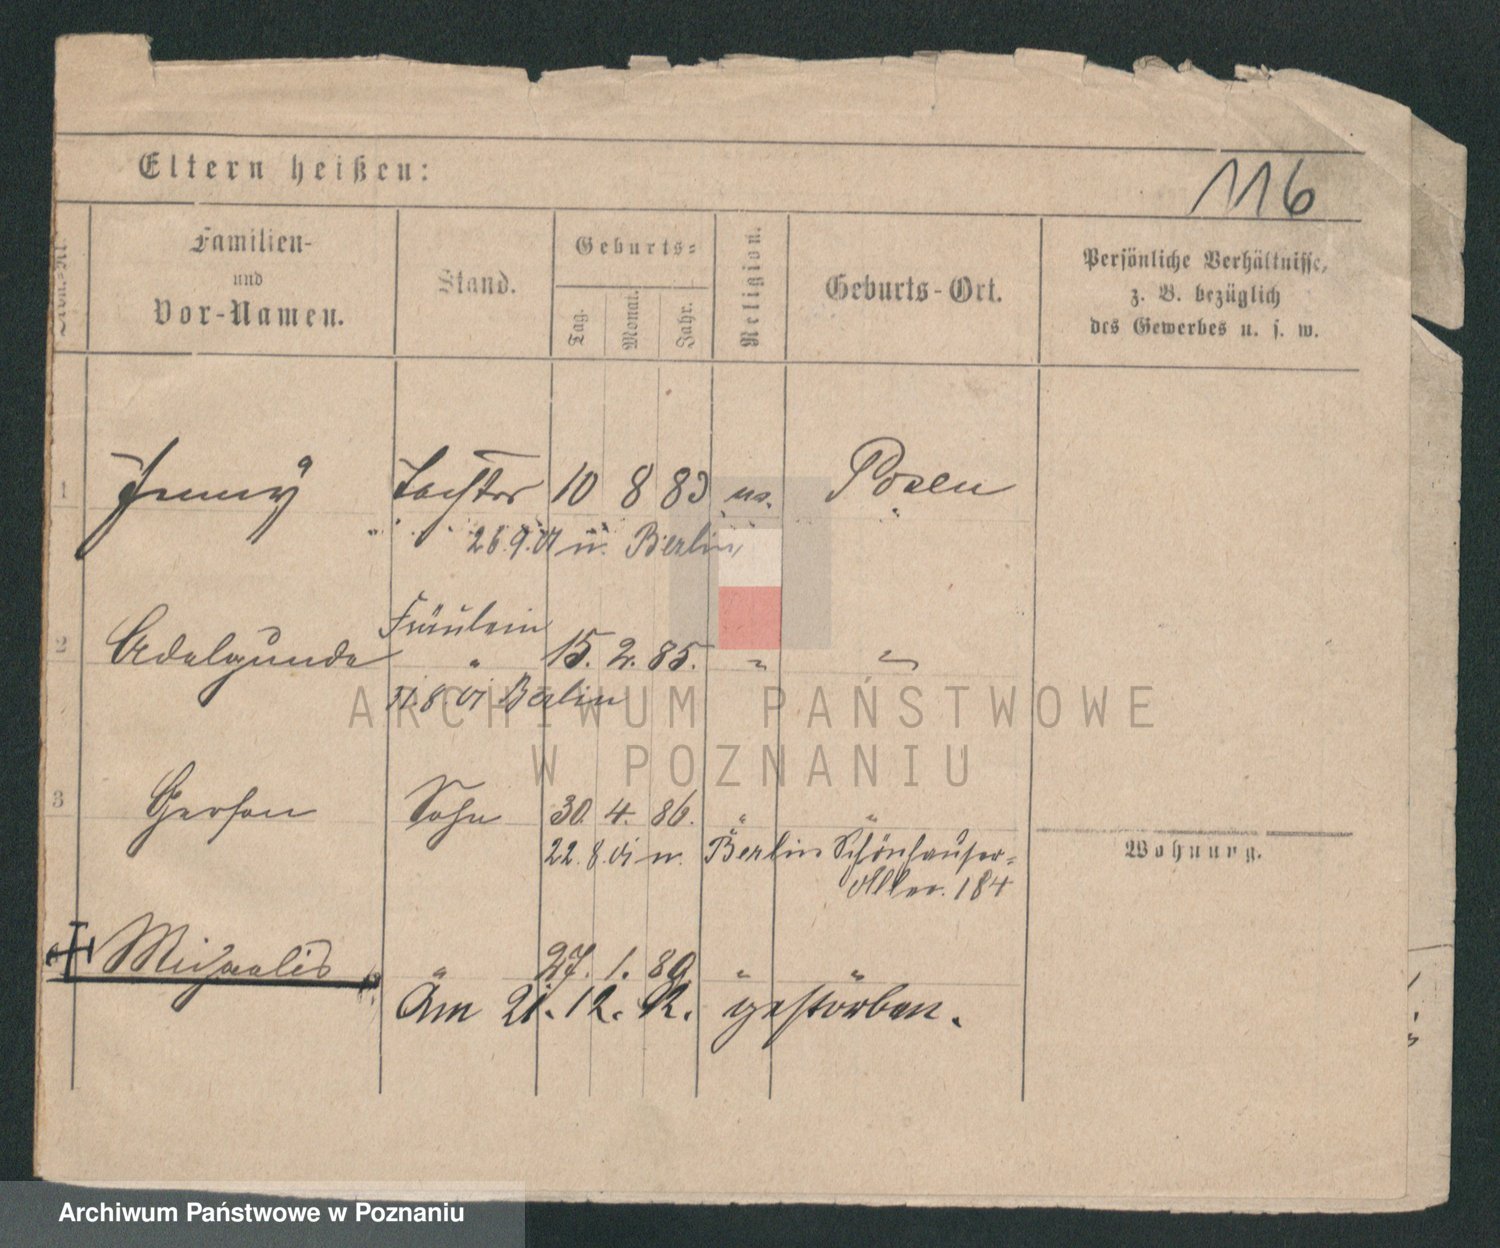 Eltern heißen:
116
Familien-
und
Vor-Namen.
Stand.
Geburts-
Tag.
Monat.
Jahr.
Religion.
Geburts-Ort.
Persönliche Verhältnisse,
z. B. bezüglich
des Gewerbes u. s. w.
1 Jenny Tochter 10 8 83 Posen
26.9.01 n. Berlin
Fräulein
2 Adelgunde " 15. 2. 85. " "
8.01 Berlin
3 Gerson Sohn 30. 4. 86. " "
22.8.01 n. Berlin Schönhauser-
Allee. 184
Wohnung.
Michaelis " 27. 1. 89 " "
Am 21. 12. 12. gestorben.
ARCHIWUM PAŃSTWOWE
W POZNANIU
Archiwum Państwowe w Poznaniu